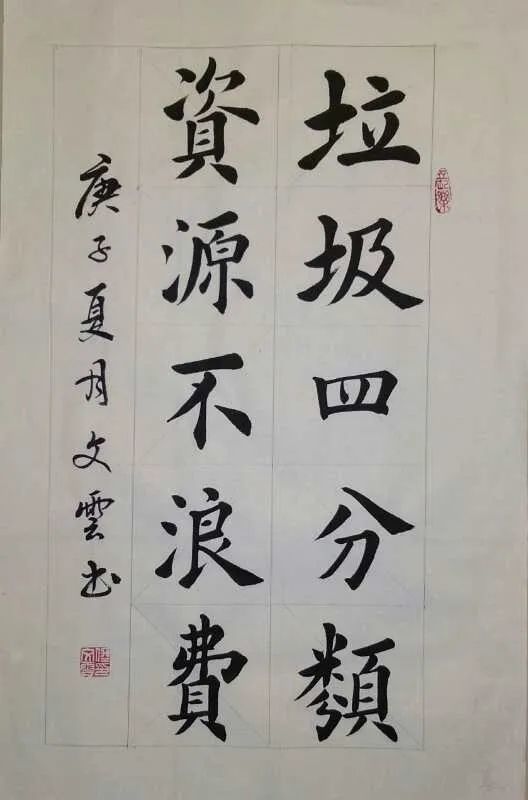 垃圾四分類
資源不浪費
庚子夏月文雲书